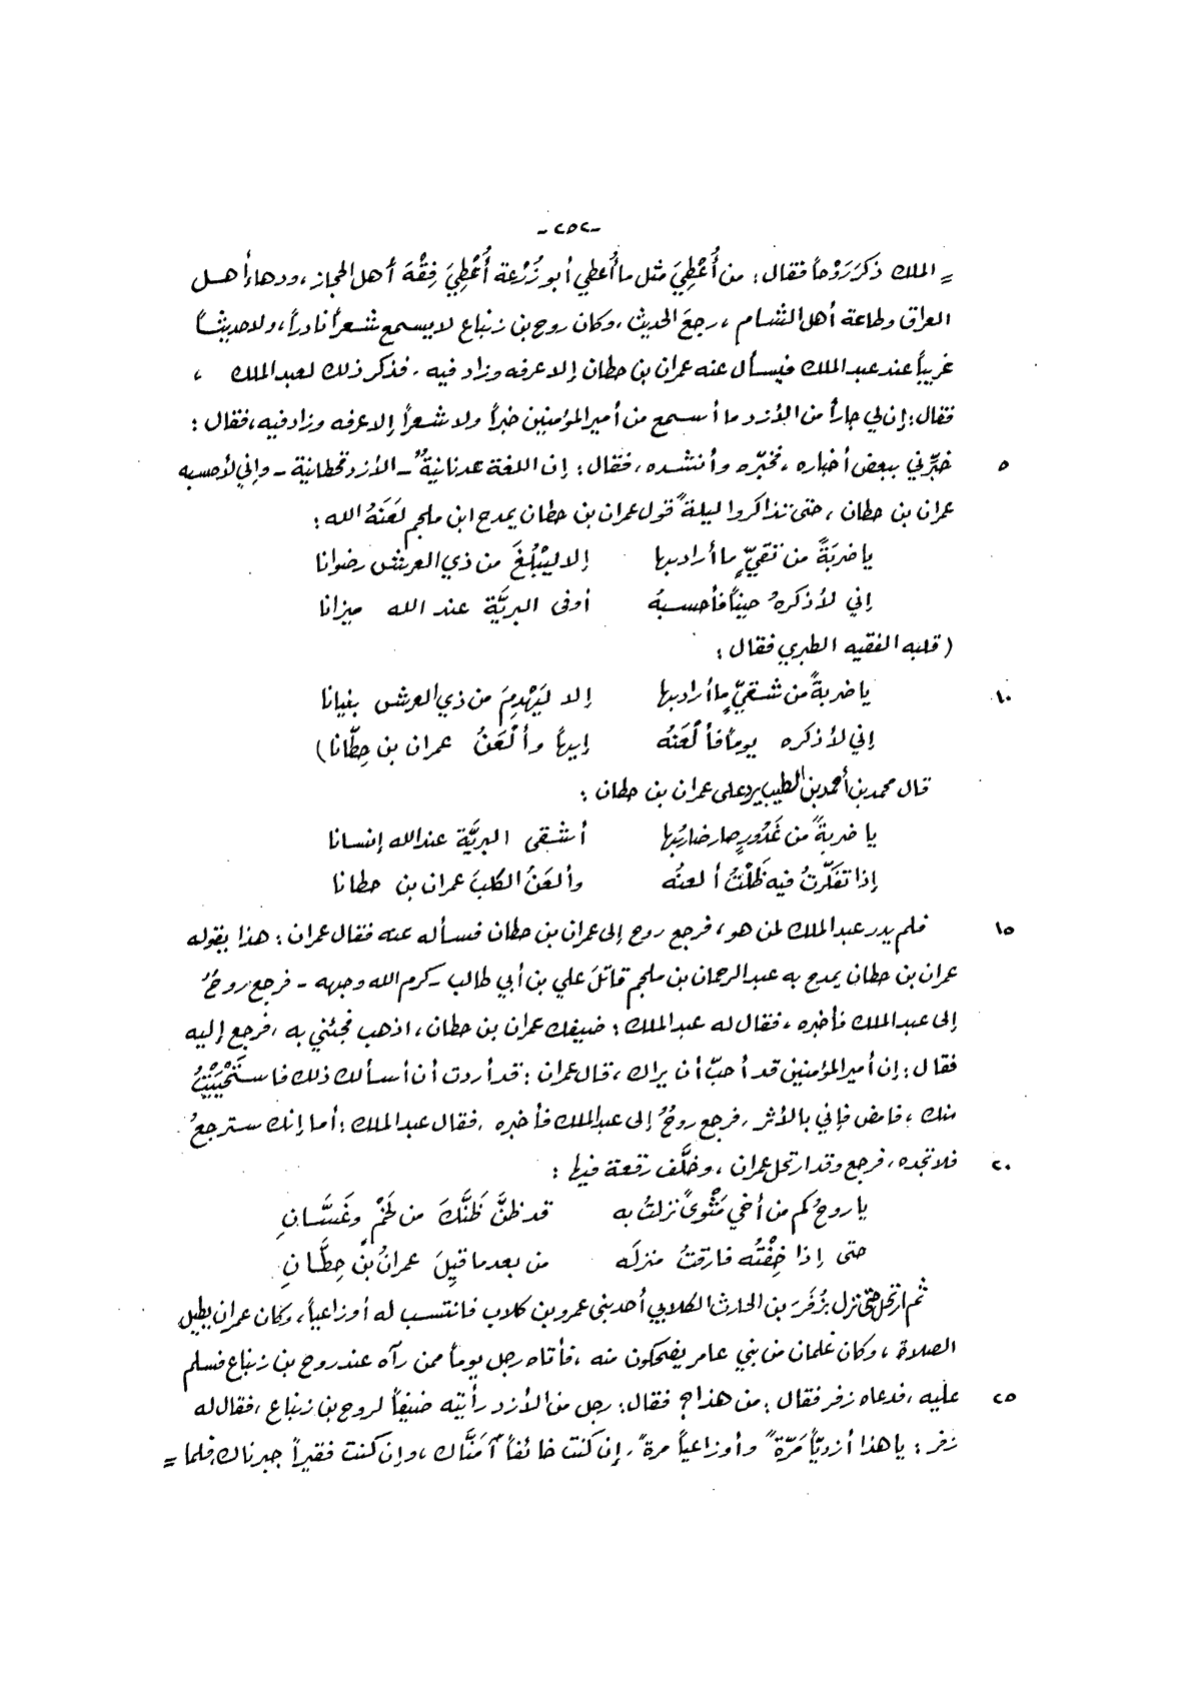 -٢٥٢-
= الملك ذكَرَ رَوْحاً فقال: من أُعْطِيَ مثل ما أُعطي أبو زُرْعة أُعْطِيَ فِقْهَ أهل الحجاز، ودهاءَ أهـل
العراق وطاعة أهل الشـام، رجعَ الحديث، وكان روح بن زنباع لا يسمع شـعراً نادراً، ولا حديثـاً
غريباً عند عبد الملك فيسأل عنه عمران بن حطان إلا عرفه وزاد فيه، فذكر ذلك لعبد الملك ،
فقال: إن لي جاراً من الأزد ما أسـمع من أمير المؤمنين خبراً ولا شعراً إلا عرفه وزاد فيه، فقال :
٥ خبّرْني ببعض أخباره، فخبّره وأنشـده، فقال: إن اللغة عدنانيةٌ - الأزد قحطانية - وإني لأحسبه
عمران بن حطان، حتى تذاكروا ليلةً قول عمران بن حطان يمدح ابن ملجم لَعَنَهُ الله :
يا ضربَةً من تقيٍّ ما أراد بها إلا ليَبْلُغَ من ذي العرشـ رضوانا
إني لأذكرهُ حيناً فأحسـبهُ أوفى البريَّة عند الله ميزانا
(قلبه الفقيه الطبري فقال :
١٠ يا ضربةً من شـقيٍّ ما أراد بها إلا ليَهْدِمَ من ذي العرش بنيانا
إني لأذكره يوماً فألْعَنُه إيهاً وألْعَنُ عمران بن حِطّانا)
قال محمد بن أحمد بن الطيب يرد على عمران بن حطان :
يا ضربةً من غَدُورٍ صار ضاربُها أشـقى البريَّة عند الله إنسانا
إذا تفكّرتُ فيه ظَلْتُ ألعنُه وألعَنُ الكلبَ عمران بن حطانا
١٥ فلم يدر عبد الملك لمن هو، فرجع روح إلى عمران بن حطان فسأله عنه فقال عمران: هذا يقوله
عمران بن حطان يمدح به عبد الرحمان بن ملجم قاتلَ علي بن أبي طالب - كرم الله وجهه - فرجع روحٌ
إلى عبد الملك فأخبره، فقال له عبد الملك: ضيفك عمران بن حطان، اذهب فجئني به، فرجع إليه
فقال: إن أمير المؤمنين قد أحبّ أن يراك، قال عمران: قد أردت أن أسألك ذلك فاستَحْيَيْتُ
منك، فامض فإني بالأثر، فرجع روحٌ إلى عبد الملك فأخبره، فقال عبد الملك: أما إنك سترجعُ
٢٠ فلا تجده، فرجع وقد ارتحل عمران، وخلَّف رقعة فيها :
يا روحُ كم من أخي مَثْوىً نزلتُ به قد ظنَّ ظَنَّكَ من لَخْمٍ وغَسَّـانِ
حتى إذا خِفْتُه فارقتُ منزلَه من بعد ما قيلَ عمرانُ بنُ حِطَّـانِ
ثم ارتحل حتى نزل بزُفَرَ بن الحارث الكلابي أحد بني عمرو بن كلاب فانتسب له أوزاعياً، وكان عمران يطيل
الصلاة، وكان غلمان من بني عامر يضحكون منه، فأتاه رجل يوماً ممن رآه عند روح بن زنباع فسلم
٢٥ عليه، فدعاه زفر فقال: من هذا؟ فقال: رجل من الأزد رأيته ضيفاً لروح بن زنباع، فقال له
زفر: يا هذا أزديّاً مَرّةً وأوزاعياً مرةً، إن كنت خائفاً آمَنَّاك، وإن كنت فقيراً جبرناك، فلما =